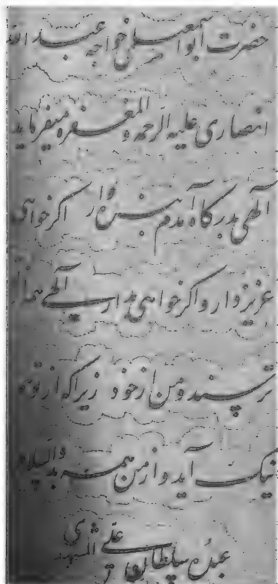 حضرت ابو اسمعیل خواجه عبد الله
انصاری علیه الرحمه والمغفره میفرماید
الهی بدرگاه آمدم بنده وار اگر خواهی
عزیز دار و اگر خواهی خوار الهی همه از تو
ترسند و من از خود زیرا که از تو همه
نیک آید و از من همه بد والسلام
عبده سلطان علی مشهدی